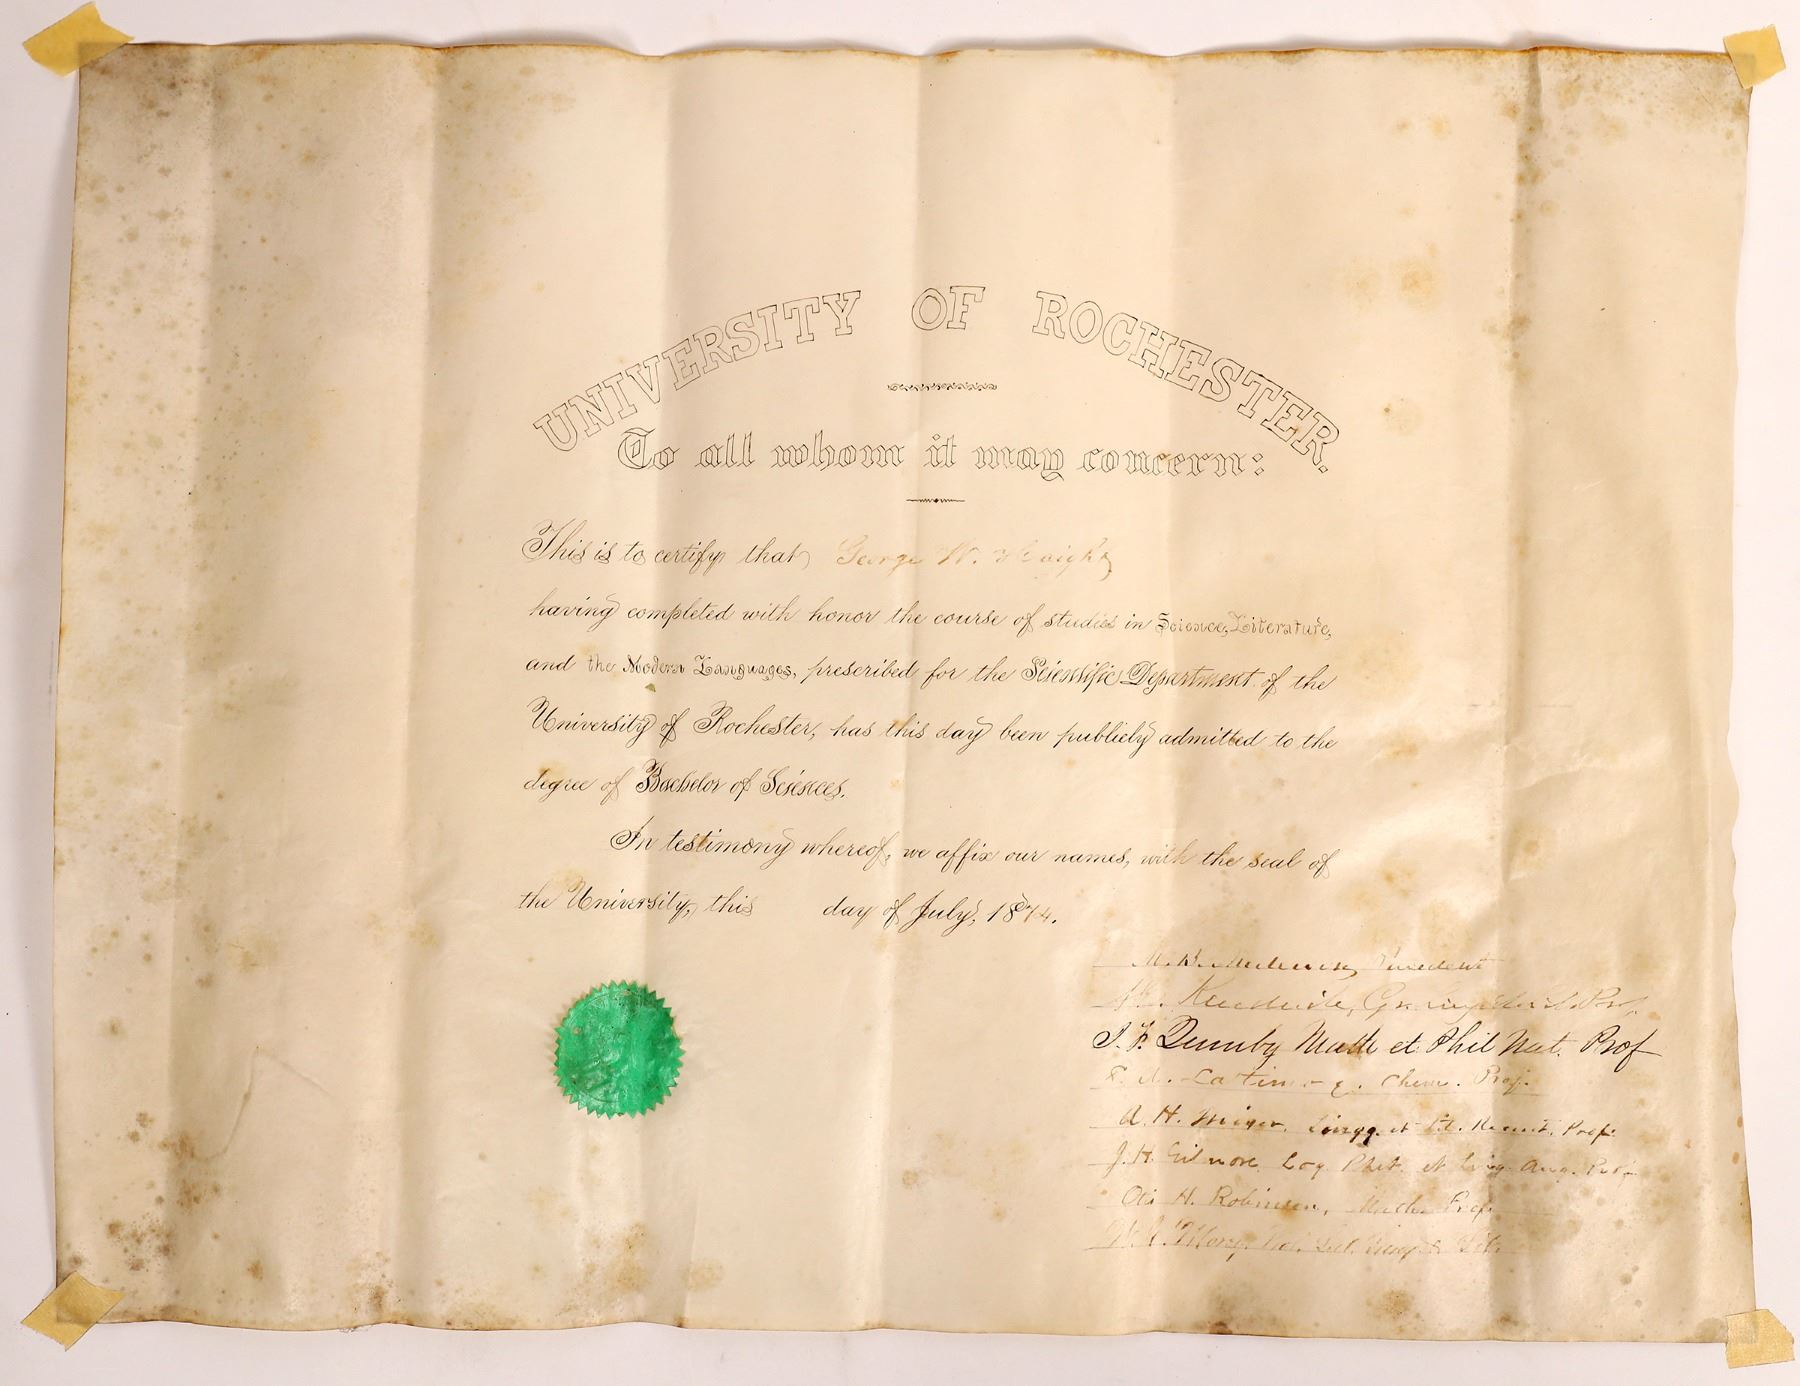 UNIVERSITY OF ROCHESTER.
To all whom it may concern:
This is to certify that George W. Haight
having completed with honor the course of studies in Science, Literature,
and the Modern Languages, prescribed for the Scientific Department of the
University of Rochester, has this day been publicly admitted to the
degree of Bachelor of Sciences.
In testimony whereof, we affix our names, with the seal of
the University, this day of July, 1874.
M. B. President
Prof.
Math et Phil Nat. Prof
Lattimore, Chem. Prof.
A. H. Prof.
J. H. Gilmore, Log. Rhet. et Ang. Prof
Otis H. Robinson, Math. Prof
W. C. Morey